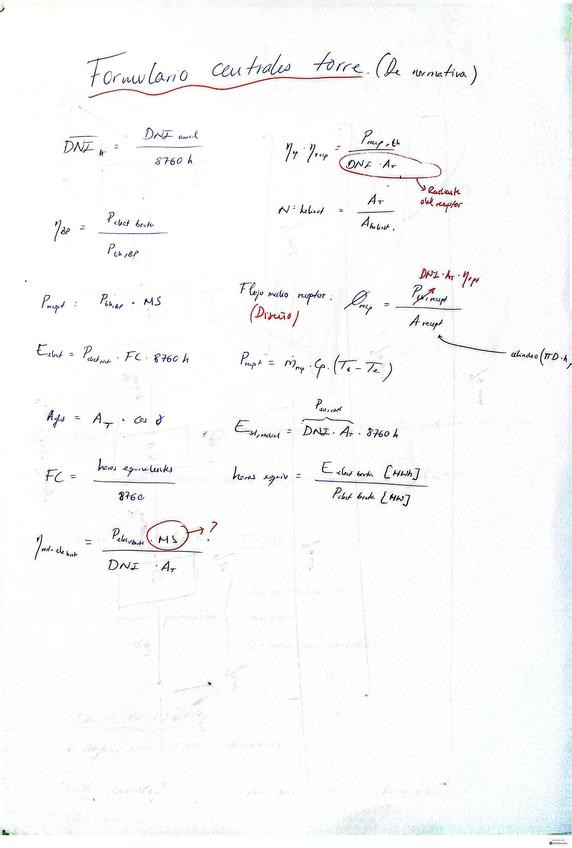 Formulario centrales torre. (De normativa)
DNI h = DNI anual / 8760 h
η · η recep = P recep, th / DNI · A_T
Radiante del receptor
Nº heliost = A_T / A heliost.
η BP = P elect bruta / P th, BP
P recept = P th, BP · MS
Flujo medio receptor : Ø recep = P recept / A recept
(Diseño)
DNI · A_T · η opt
cilindro (πD·h
E elect = P elect nat · FC · 8760 h
P recept = ṁ · Cp · (Ts - Te)
= A_T · cos γ
P sol, rad
E sol, = DNI · A_T · 8760 h
FC = horas equivalentes / 8760
horas equiv = E elect bruta [MWh] / P elect bruta [MW]
η = P elect bruta · MS / DNI · A_T
?